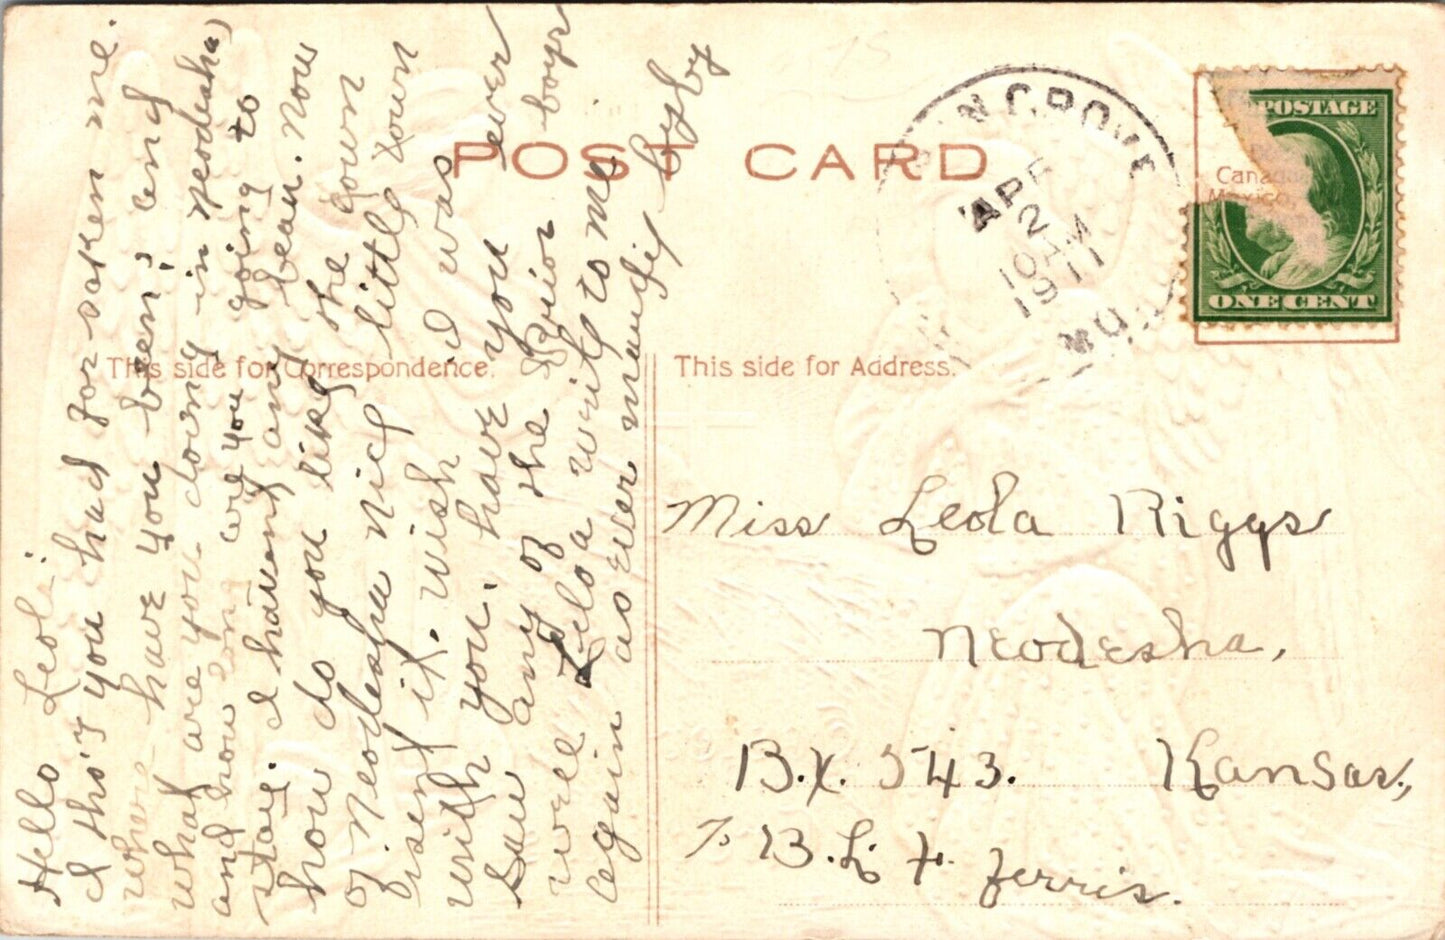 POST CARD
This side for Correspondence.
This side for Address.
POSTAGE
ONE CENT
Canada
Mexico
GROVE
APR
2
10 AM
1911
MO.
Hello Leoli
I tho't you had for-saken me.
where have you been; and
what are you doing in neodesha
and how long are you going to
stay. I havent any beau. now
how do you like the town
of Neodesha nice little town
isent it. wish I was
with you. have you ever
saw any of the Prior boys
well Leloa write to me
again as ever
Miss Leola Riggs
Neodesha,
B.X. 543. Kansas,
% B. L. F. Ferris.